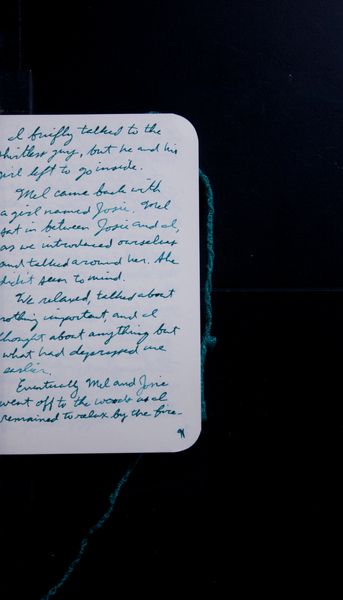 I briefly talked to the
shirtless guy, but he and his
girl left to go inside.
Mel came back with
a girl named Josie. Mel
sat in between Josie and I,
as we introduced ourselves
and talked around her. She
didn't seem to mind.
We relaxed, talked about
nothing important, and I
thought about anything but
what had depressed me
earlier.
Eventually Mel and Josie
went off to the woods as I
remained to relax by the fire-